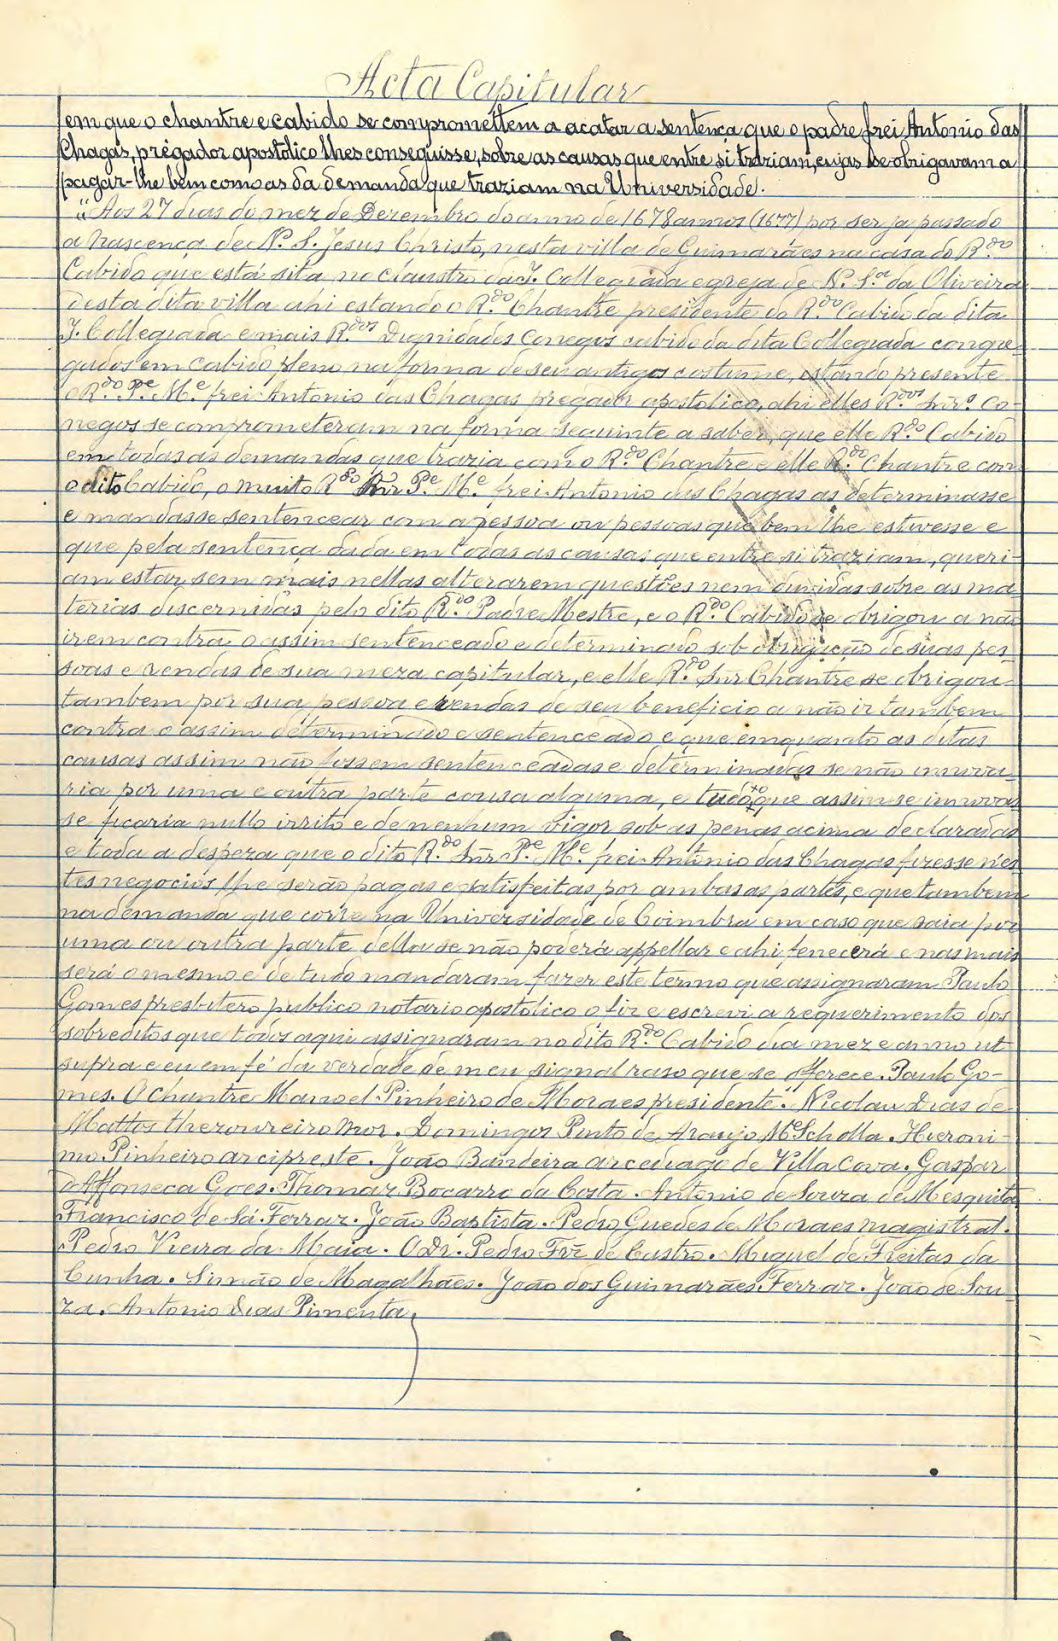 Acta Capitular
em que o chantre e cabido se compromettem a acatar a sentença que o padre frei Antonio das
Chagas, prégador apostolico lhes conseguisse, sobre as causas que entre si traziam, cujas se obrigavam a
pagar-lhe bem como as da demanda que traziam na Universidade.
"Aos 27 dias do mez de Dezembro do anno de 1678 annos (1677) por ser ja passado
a nascença de N. S. Jesus Christo, nesta villa de Guimarães na casa do R.do
Cabido que está sita no claustro da I. Collegiada egreja de N. S.a da Oliveira
desta dita villa ahi estando o R.do Chantre presidente do R.do Cabido da dita
I. Collegiada e mais R.dos Dignidades Conegos cabido da dita Collegiada congre-
gados em cabido pleno na forma de seu antigo costume, estando presente
o R.do P.e M.e frei Antonio das Chagas pregador apostolico, ahi elles R.dos Snr.s Co-
negos se comprometeram na forma seguinte a saber, que elle R.do Cabido
em todas as demandas que trazia com o R.do Chantre e elle R.do Chantre com
o dito Cabido, o muito R.do Snr P.e M.e frei Antonio das Chagas as determinasse
e mandasse sentencear com a pessoa ou pessoas que bem lhe estivesse e
que pela sentença dada em todas as causas que entre si traziam, queri-
am estar, sem mais nellas alterarem questões nem duvidas sobre as ma-
terias discernidas pelo dito R.do Padre Mestre, e o R.do Cabido se obrigou a não
irem contra o assim sentenceado e determinado sob obrigação de suas pes-
soas e rendas de sua meza capitular, e elle R.do Snr Chantre se obrigou
tambem por sua pessoa e rendas de seu beneficio a não ir tambem
contra o assim determinado e sentenceado e que emquanto as ditas
causas assim não fossem sentenceadas e determinadas se não innova-
ria por uma e outra parte cousa alguma, e tudo o que assim se innovas-
se ficaria nullo irrito e de nenhum vigor sob as penas acima declaradas
e toda a despeza que o dito R.do Snr P.e M.e frei Antonio das Chagas fizesse n'es-
tes negocios lhe serão pagas e satisfeitas por ambas as partes, e que tambem
na demanda que corre na Universidade de Coimbra em caso que saia por
uma ou outra parte della se não poderá appellar e ahi fenecerá e nas mais
será o mesmo e de tudo mandaram fazer este termo que assignaram Paulo
Gomes presbitero publico notario apostolico o fiz e escrevi a requerimento dos
sobreditos que todos aqui assignaram no dito R.do Cabido dia mez e anno ut
supra e eu em fé da verdade de meu signal raso que se offerece. Paulo Go-
mes. O Chantre Manoel Pinheiro de Moraes presidente. Nicolau Dias de
Mattos thezoureiro mor. Domingos Pinto de Araujo M.e Scholla. Hieroni-
mo Pinheiro arcipreste. João Bandeira arcediago de Villa Cova. Gaspar
d'Affonseca Goes. Thomaz Bocarro da Costa. Antonio de Souza de Mesquita
Francisco de Sá Ferraz. João Baptista. Pedro Guedes de Moraes magistral.
Pedro Vieira da Maia. O Dr. Pedro Frz de Castro. Miguel de Freitas da
Cunha. Simão de Magalhães. João dos Guimarães Ferraz. João de Sou-
za. Antonio Dias Pimenta.